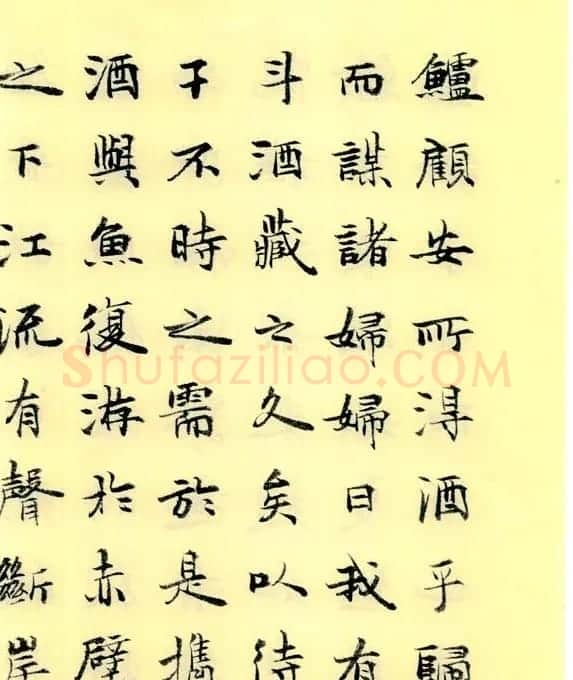 鱸顧安所得酒乎歸
而謀諸婦婦曰我有
斗酒藏之久矣以待
子不時之需於是攜
酒與魚復游於赤壁
之下江流有聲斷岸
Shufaziliao.COM